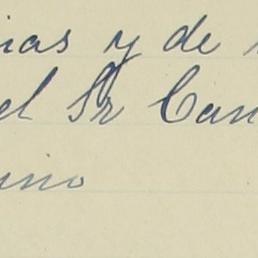 ias y de
el Sr Can
ino